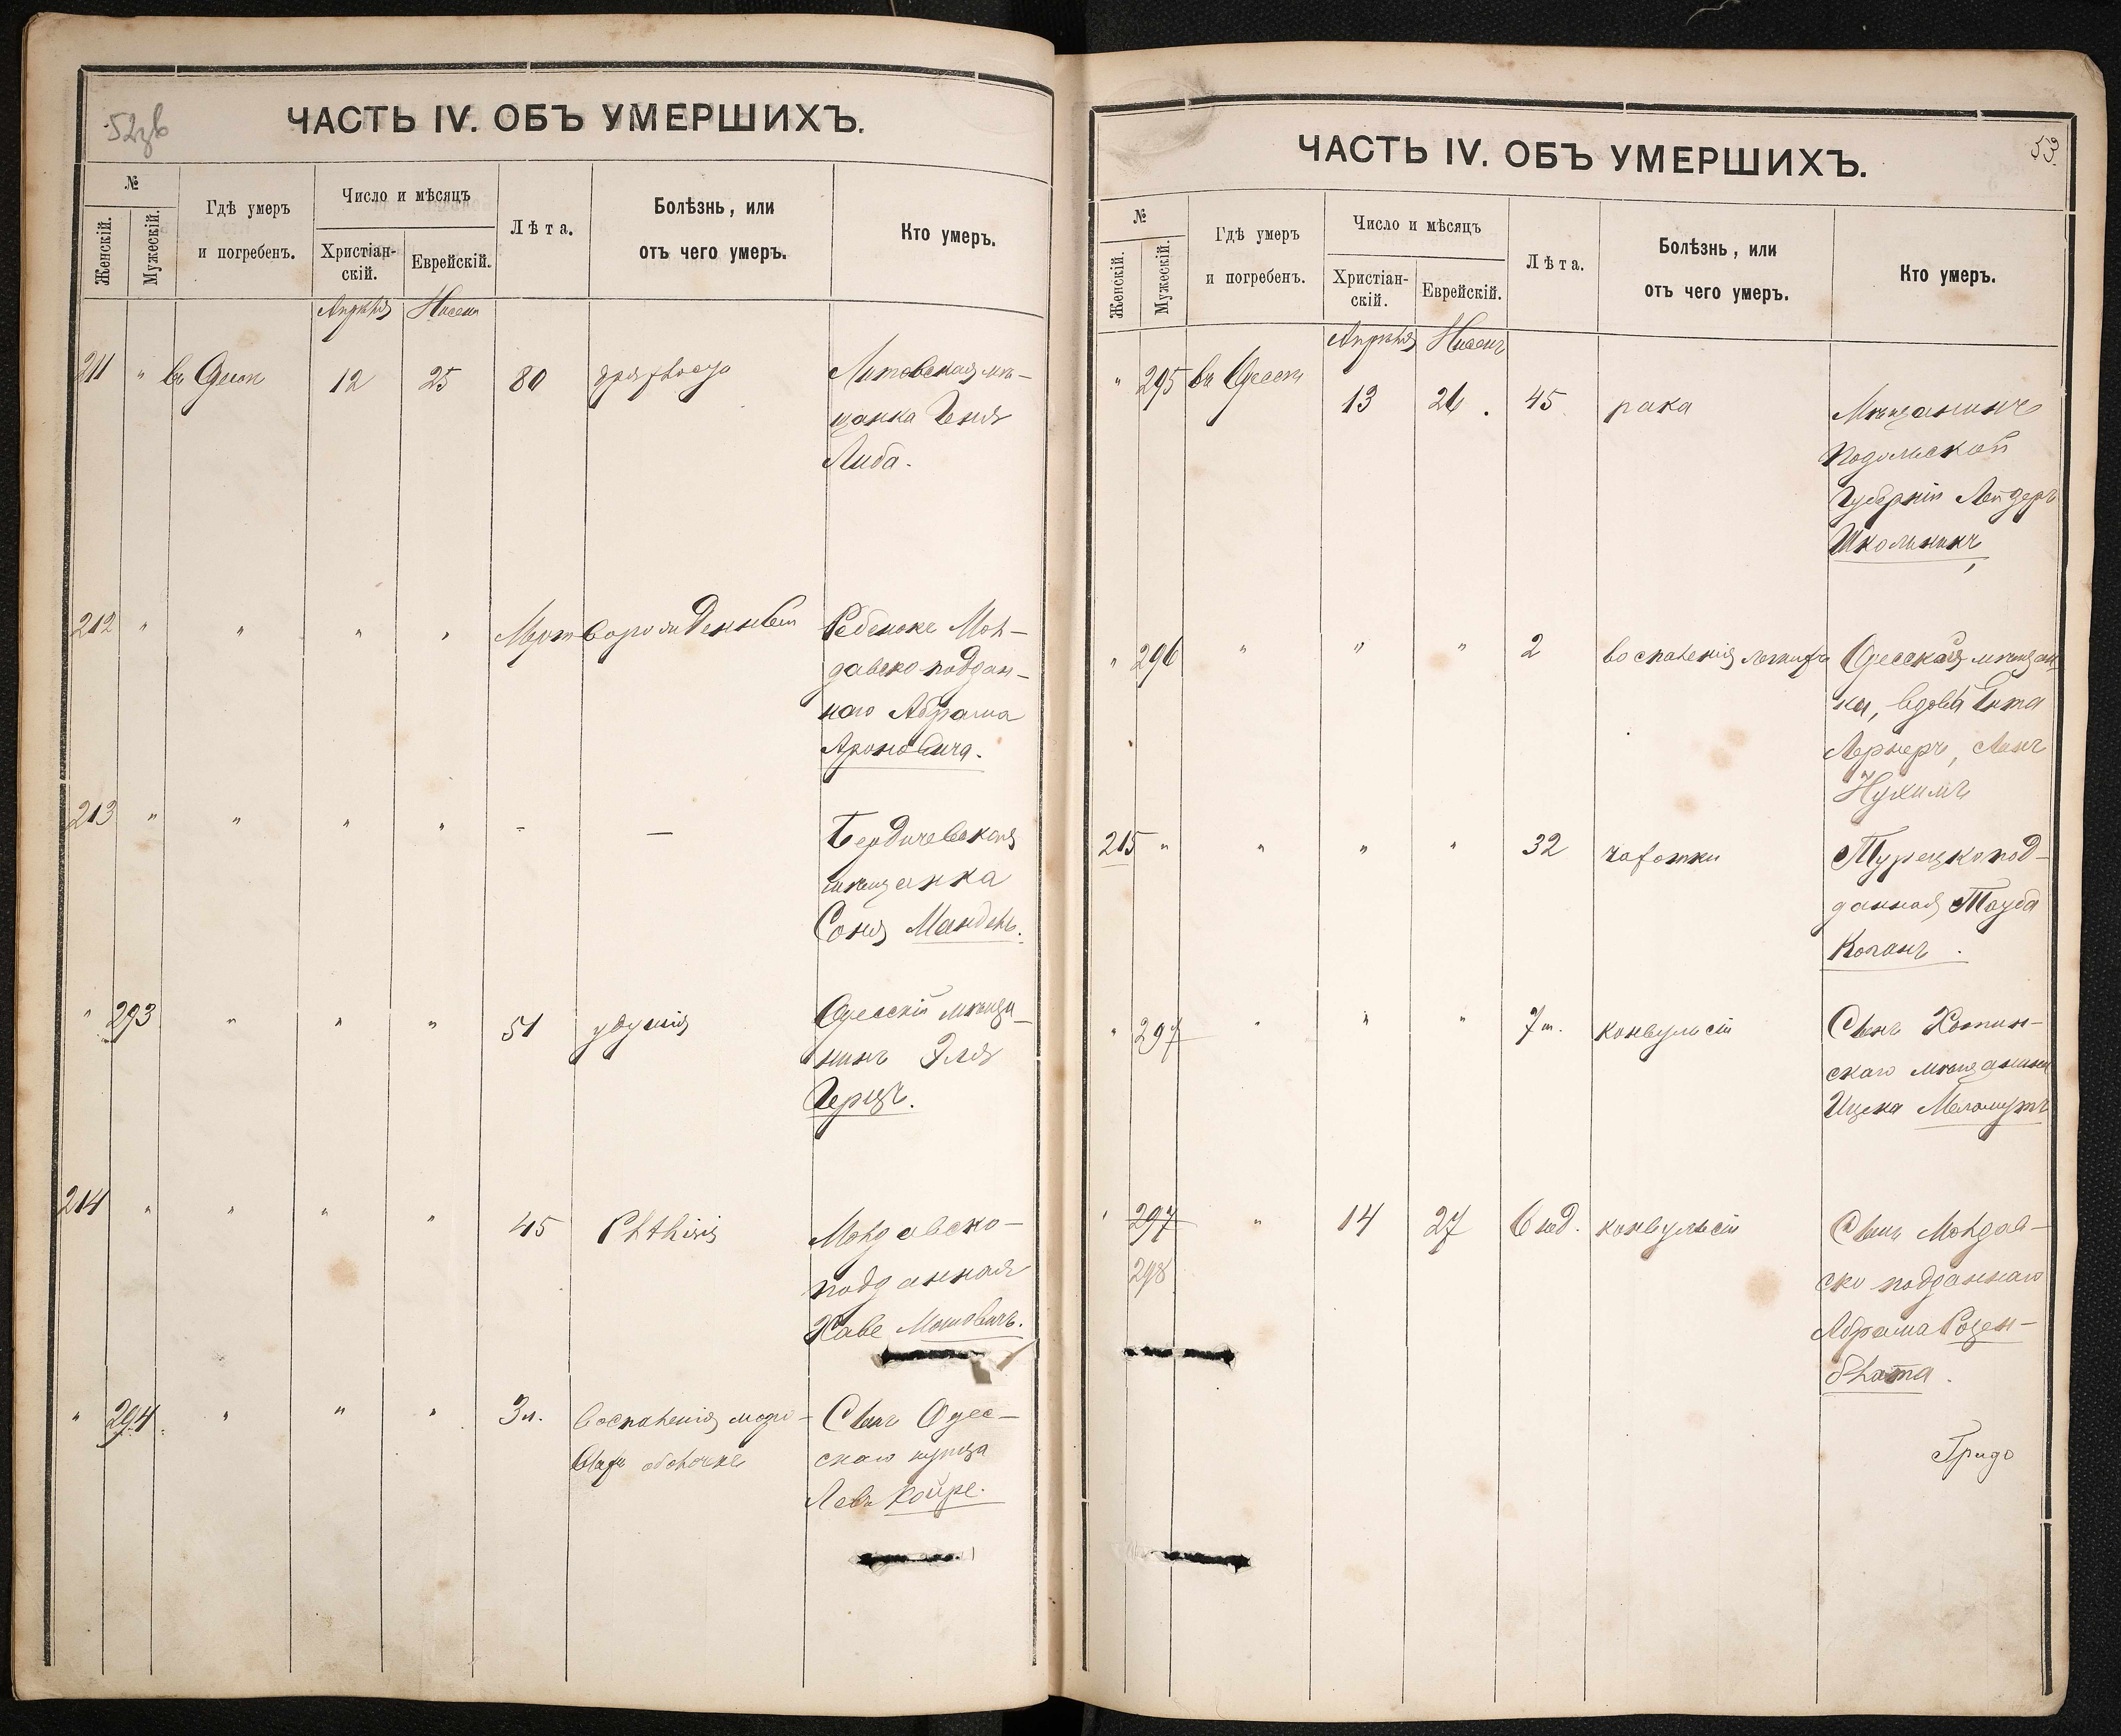 52
ЧАСТЬ IV. ОБЪ УМЕРШИХЪ.
№
Женскій.
Мужескій.
Гдѣ умеръ
и погребенъ.
Число и мѣсяцъ
Христіан-
скій.
Еврейскій.
Лѣта.
Болѣзнь, или
отъ чего умеръ.
Кто умеръ.
Апрѣля Нисанъ
211 " въ 12 25 80 Литовская мѣ-
щанка Геня
Либа.
212 " " " " Мертворожденный Ребенокъ Мол-
давскоподдан-
наго Абрама
Ароновича.
213 " " " " - — Бердичевская
мѣщанка
Соня Мандель.
" 293 " " " 51 удушія Одесскій мѣща-
нинъ Эля
Герцъ.
214 " " " " 45 Phthisis Молдавско-
подданная
Хаве
" 294 " " " 3 л. воспаленія мозго-
выхъ оболочке Сынъ Одес-
скаго купца
Лева Койре.
53
ЧАСТЬ IV. ОБЪ УМЕРШИХЪ.
№
Женскій.
Мужескій.
Гдѣ умеръ
и погребенъ.
Число и мѣсяцъ
Христіан-
скій.
Еврейскій.
Лѣта.
Болѣзнь, или
отъ чего умеръ.
Кто умеръ.
Апрѣля Нисанъ
" 295 въ Одессѣ 13 26. 45 рака Мѣщанинъ
Подольской
Губерніи Лейзеръ
Школьникъ
" 296 " " " 2 воспаленія легкихъ Одесская мѣщан
ка, вдова Ента
Лернеръ, сынъ
Нухимъ
215 " " " " 32 чахотки Турецкопод-
данная Тауба
Коганъ.
" 297 " " " 7 м. конвульсіи Сынъ Хотин-
скаго мѣщанина
Ицека
" 297 " 14 27 6 нед. конвульсіи Сынъ Молдав-
298 ско подданнаго
Абрама Розен-
блата.